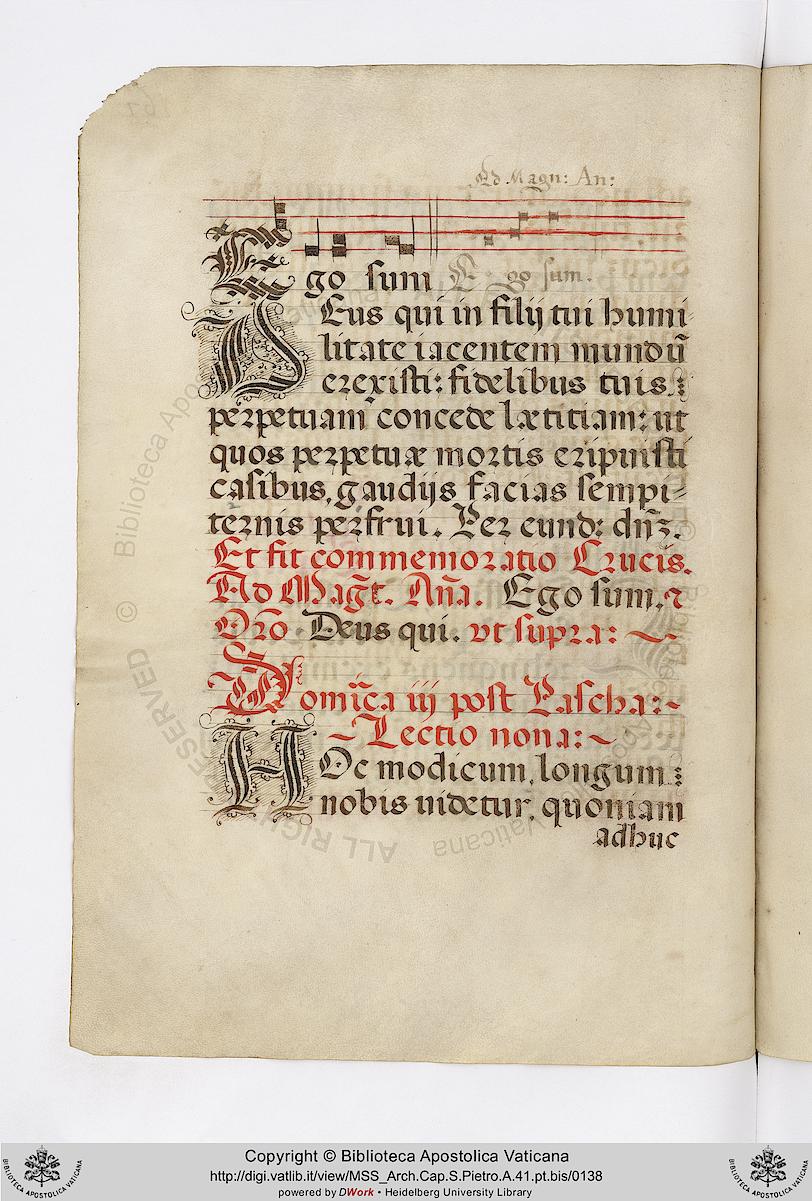 Ad Magn: An:
Ego sum E go sum.
DEus qui in filij tui humi-
litate iacentem mundũ
erexisti: fidelibus tuis
perpetuam concede lætitiam: ut
quos perpetuæ mortis eripuisti
casibus, gaudijs facias sempi-
ternis perfrui. Per eund: dñz.
Et fit commemoratio Crucis.
Ad Mag̃t. Añа. Ego sum. ꝛ
Orõ Deus qui. ut supra:~
Domĩca iij post Pascha:~
~Lectio nona:~
HOc modicum, longum:
nobis uidetur, quoniam
adhuc
© Biblioteca Apostolica Vaticana
ALL RIGHTS RESERVED
Copyright © Biblioteca Apostolica Vaticana
http://digi.vatlib.it/view/MSS_Arch.Cap.S.Pietro.A.41.pt.bis/0138
powered by DWork • Heidelberg University Library
BIBLIOTECA APOSTOLICA VATICANA
BIBLIOTECA APOSTOLICA VATICANA